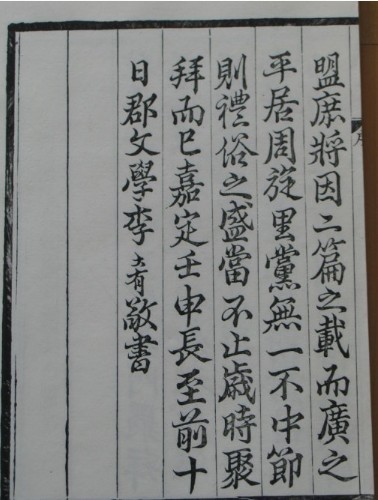 盟庶將因二篇之載而廣之
平居周旋里黨無一不中節
則禮俗之盛當不止歲時聚
拜而已嘉定壬申長至前十
日郡文學李 敬書